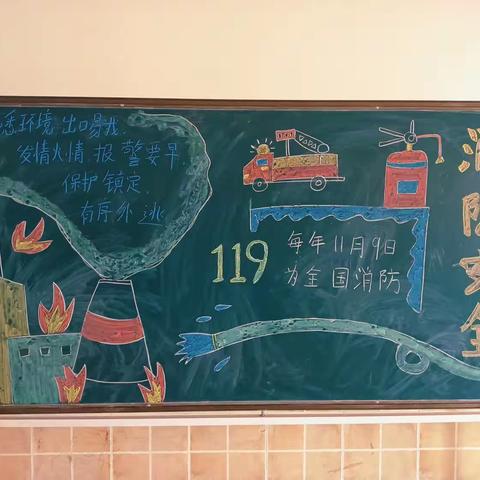 悉环境出口易找.
发情火情.报警要早.
保护镇定.
有序外逃
119
每年11月9日
为全国消防
消防安全